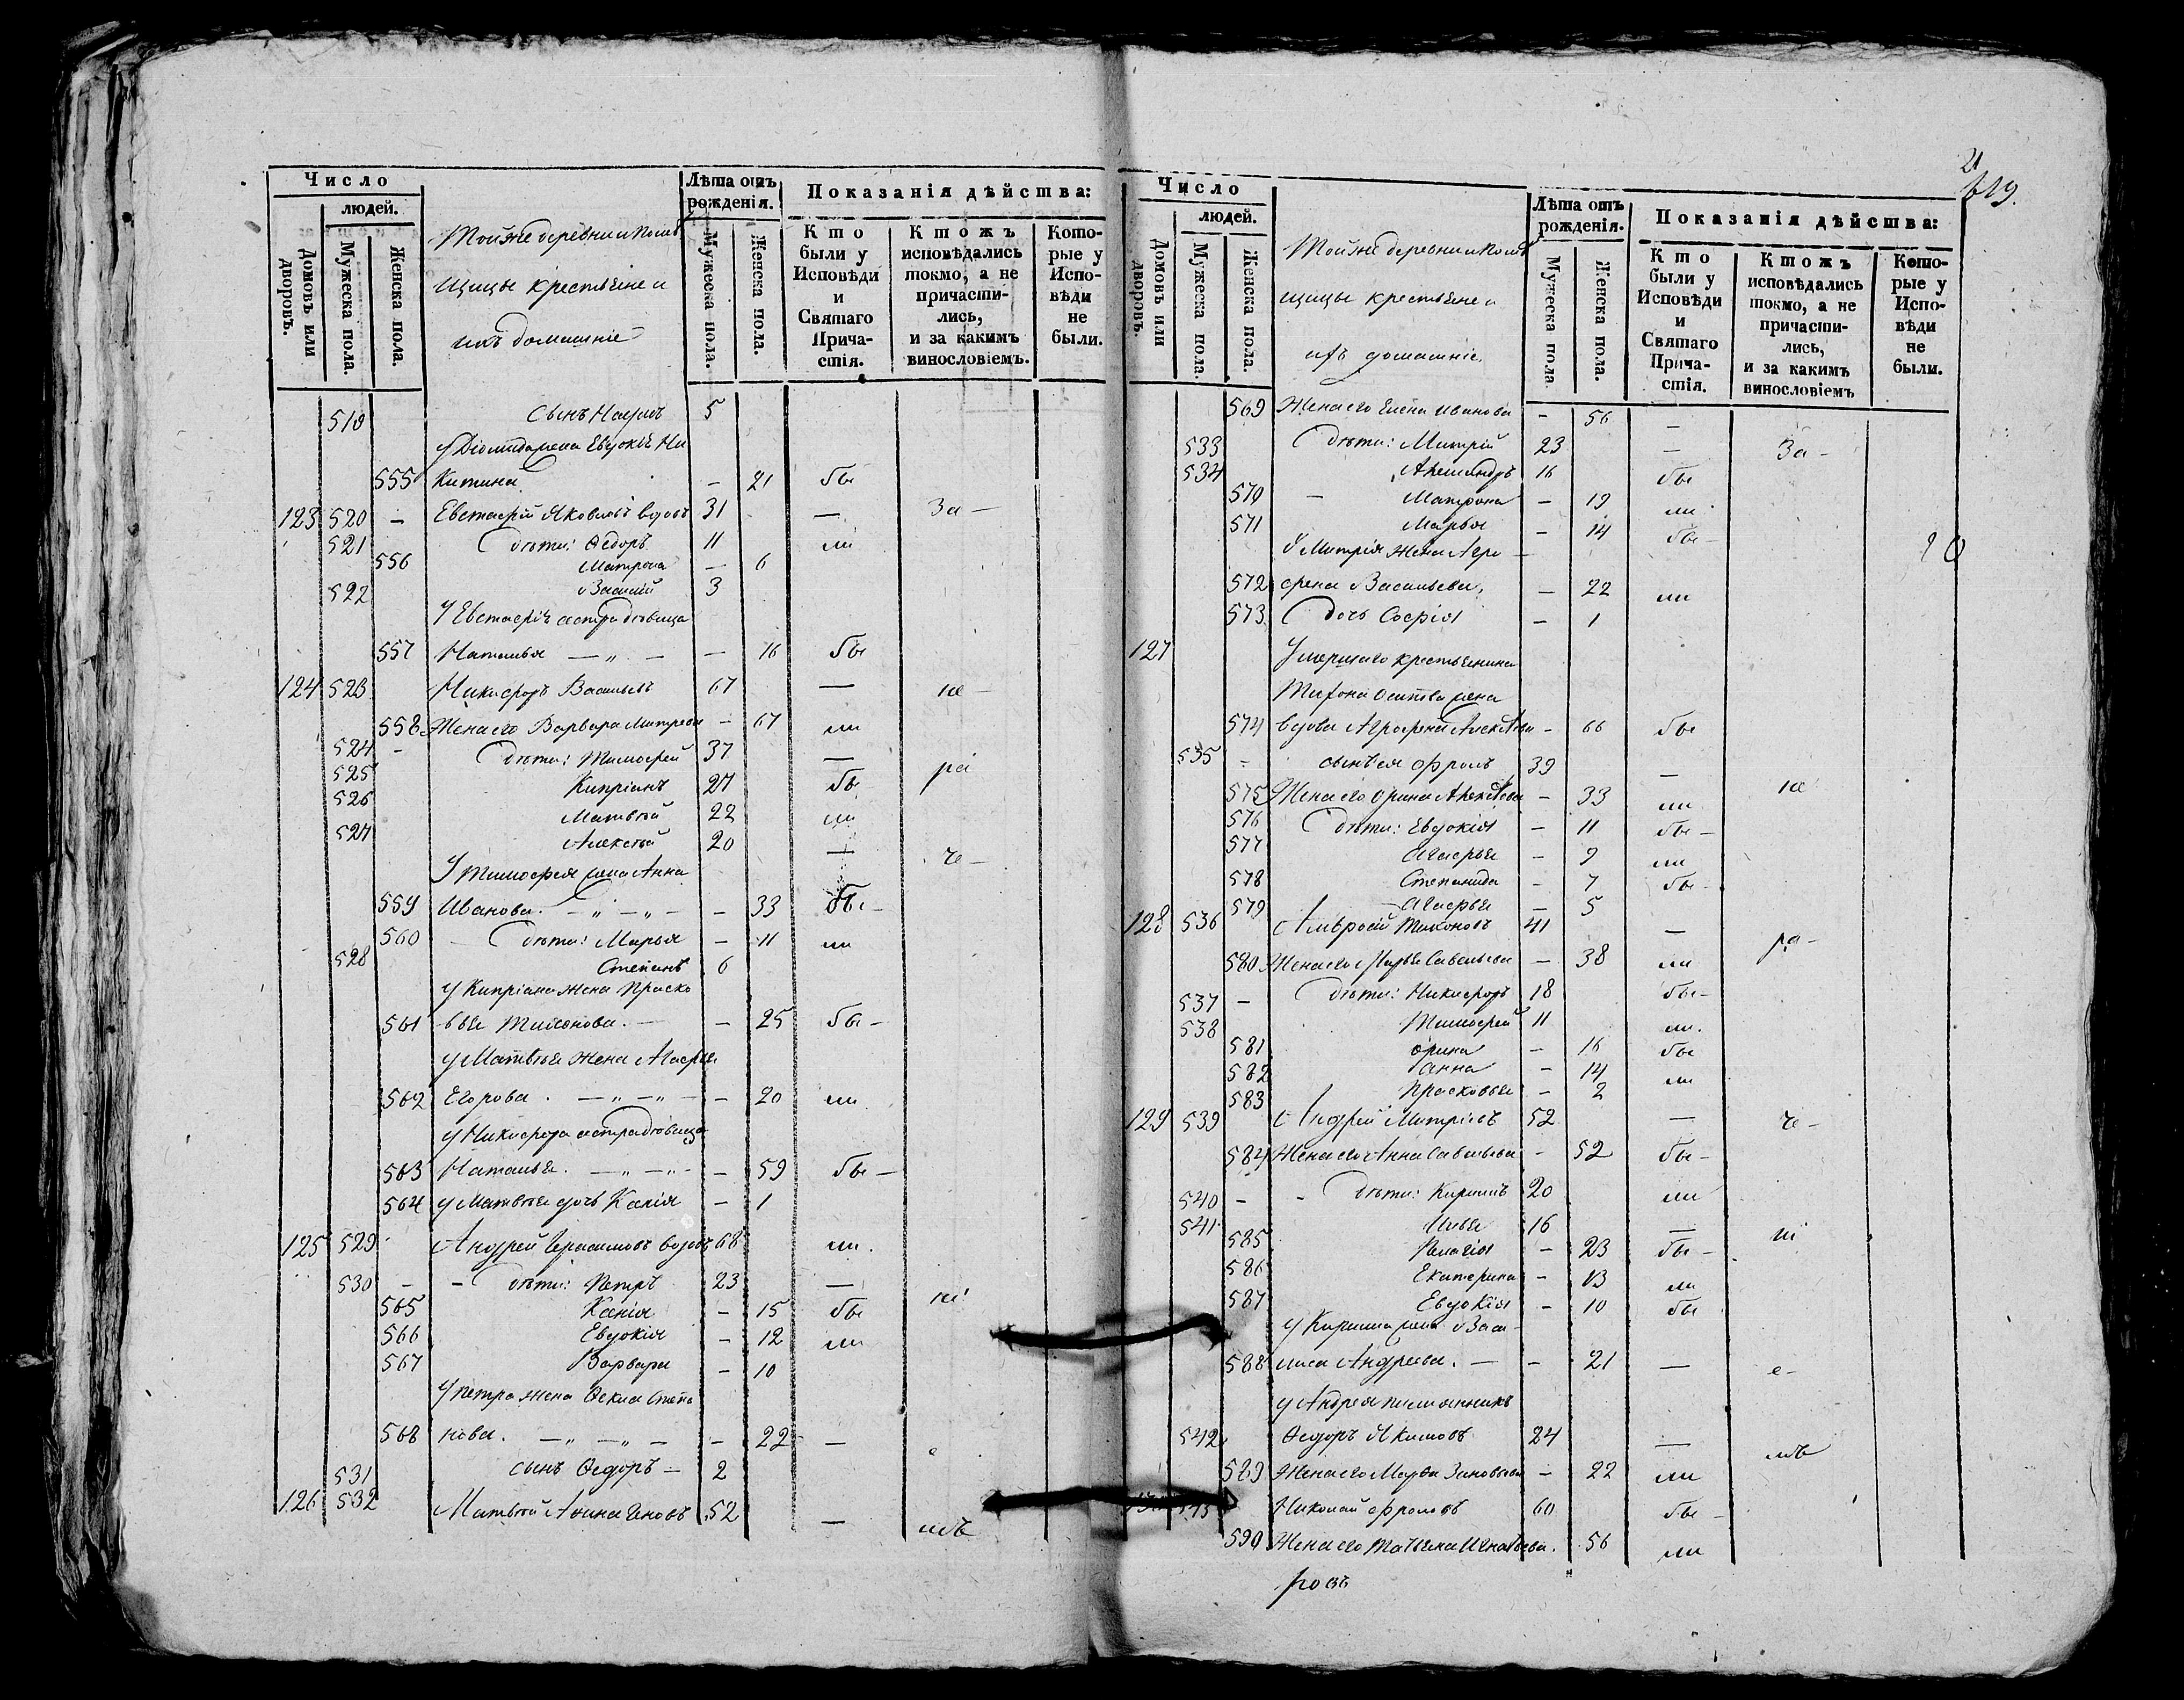 Число
людей.
Домовъ или дворовъ.
Мужеска пола.
Женска пола.
Тойже деревни и помѣ
щицы крестьяне и
ихъ домашніе
Лѣта отъ рожденія.
Мужеска пола.
Женска пола.
Показанія дѣйства:
Кто были у Исповѣди и Святаго Причастія.
Ктожъ исповѣдались токмо, а не причастились, и за какимъ винословіемъ.
Которые у Исповѣди не были.
519 сынъ 5
жена Евдокія Ни
555 китина — 21 бы
123 520 — Евстафій Яковлевъ вдовъ 31 — за —
521 дѣти: Ѳедоръ 11 ли
556 Матрона — 6
522 Василій 3
У Евстафія сестра дѣвица
557 Наталья — „ — — 16 бы
124 523 Никифоръ Васильевъ 67 — не —
558 Жена его Варвара Митрева — 67 ли
524 — дѣти: Тимофей 37 —
525 Кипріанъ 27 бы ра
526 Матвѣй 22 ли
527 Алексѣй 20 — че —
У Тимофея жена Анна
559 Иванова. — „ — „ — — 33 бы —
560 дѣти: Марья — 11 ли
528 Степанъ 6
У Кипріана жена Праско
561 вья Тимонова. — — 25 бы —
У Матвѣя жена Агафья
562 Егорова. — „ — „ — — 20 ли
У Никифора сестра дѣвица
563 Наталья. — „ — „ — — 59 бы —
564 У Матвѣя дочь Ксенія — 1
125 529 Андрей Герасимовъ вдовъ 68 ли.
530 — — дѣти: Петръ 23 —
565 Ксенія — 15 бы ні
566 Евдокія — 12 ли
567 Варвара — 10
У Петра жена Ѳекла Степа
568 нова. — „ — „ — — 22 — е
531 сынъ Ѳедоръ — 2
126 532 Матвѣй 52 — мъ
21
619.
Число
людей.
Домовъ или дворовъ.
Мужеска пола.
Женска пола.
Тойже деревни и помѣ
щицы крестьяне и
ихъ домашніе.
Лѣта отъ рожденія.
Мужеска пола
Женска пола.
Показанія дѣйства:
Кто были у Исповѣди и Святаго Причастія.
Ктожъ исповѣдались токмо, а не причастились, и за какимъ винословіемъ
Которые у Исповѣди не были.
569 Жена его Елена Иванова — 56 —
533 дѣти: Митрій 23 — За —
534 Александръ 16 бы
570 — Матрона — 19 ли
571 Марья — 14 бы —
У Митрія жена Агра —
572 фена Васильева, — 22 ли
573 дочь Софія — 1
127 Умершаго крестьянина
Тихона Осипова жена
574 вдова Аграфена Алексѣева — 66 бы
535 — сынъ ея Фролъ 39 —
575 Жена его Орина Алексѣева — 33 ли не
576 дѣти: Евдокія — 11 бы —
577 Агафья — 9 ли
578 Степанида — 7 бы —
579 Агафья — 5
128 536 Амвросій Тихоновъ 41 — ра —
580 Жена его Марья Савельева — 38 ли
537 — дѣти: Никифоръ 18 бы —
538 Тимофей 11 ли.
581 Орина — 16 бы
582 Анна — 14 ли
583 Прасковья — 2
129 539 Андрей Митріевъ 52 — че —
584 Жена его Анна Савельева — 52 бы —
540 — — дѣти: Кирилъ 20 ли
541 Илья 16 — ні
585 Пелагія — 23 бы —
586 Екатерина — 13 ли
587 Евдокія — 10 бы
У Кирила жена Васи —
588 лиса Андреева. — — 21 — е —
У Андрея племянникъ
542 Ѳедоръ Якимовъ 24 — мъ
589 Жена его Марфа Зиновьева — 22 ли
543 Николай Фроловъ 60 бы —
590 Жена его Татьяна Игнатьева. 56 ли